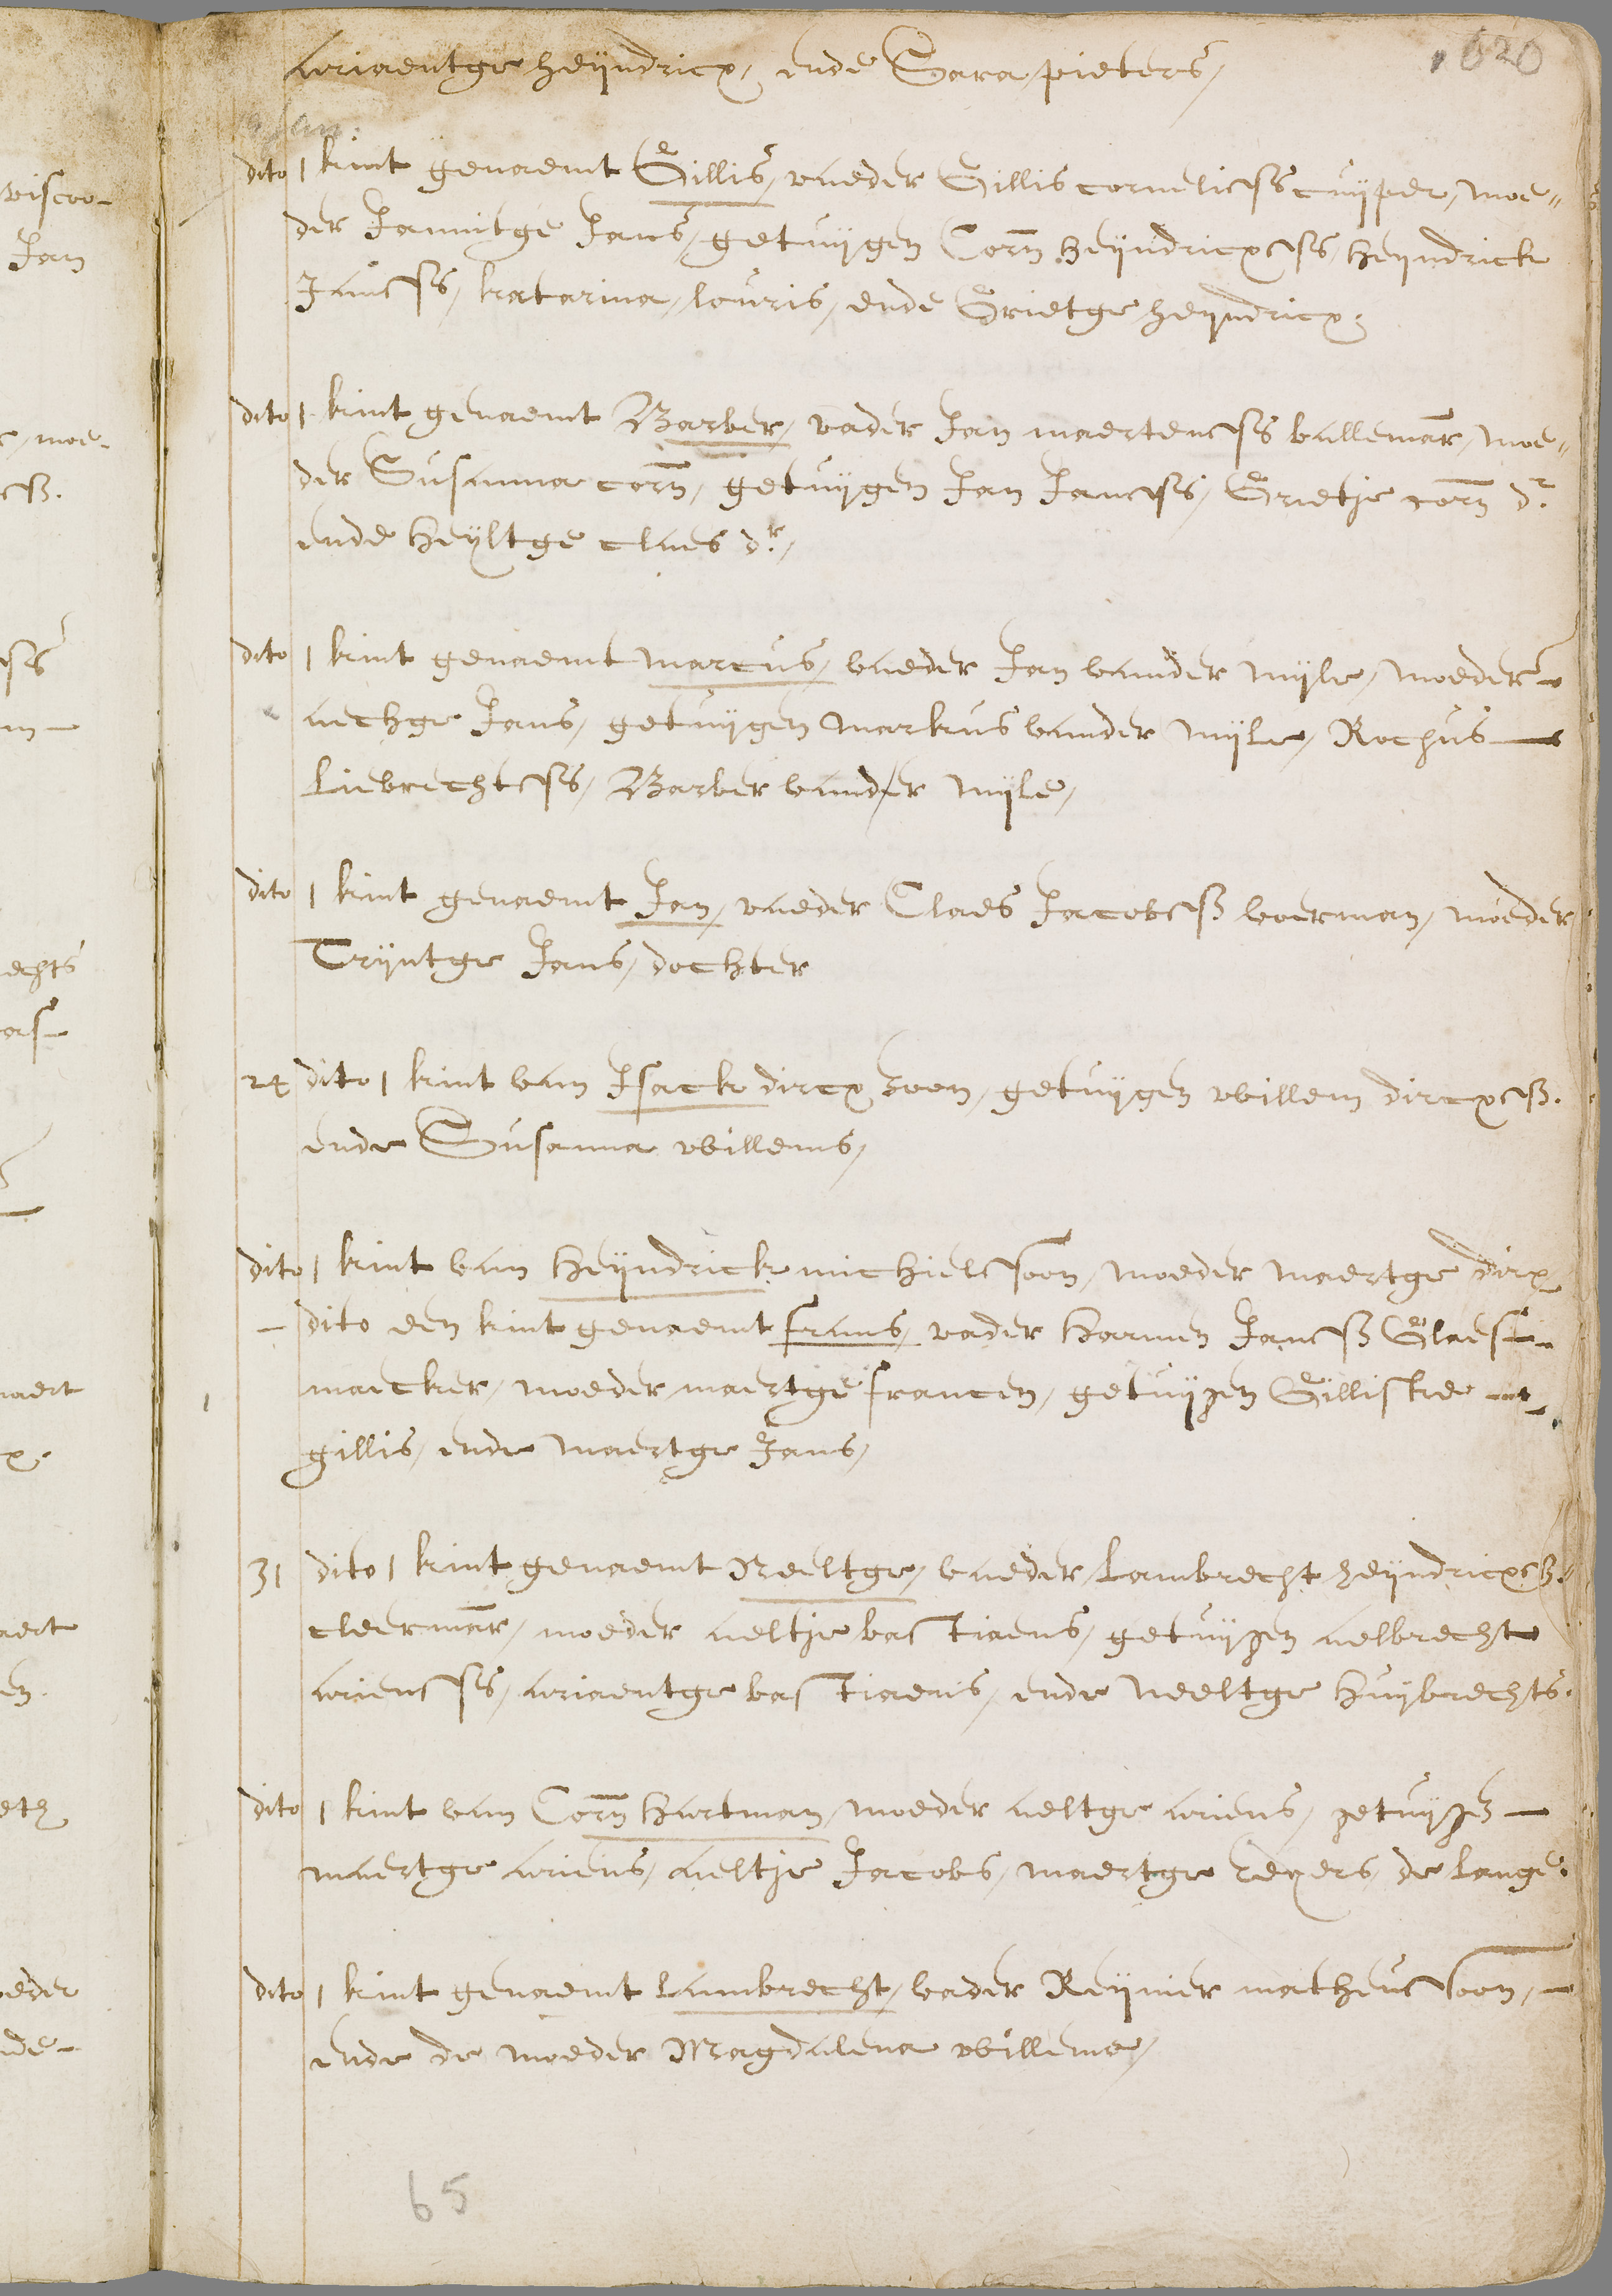 1620
Ariaentge heijndricx, ende Sara pieters,
Jan:
dito 1 kint genaemt Gillis, vaeder Gillis cornelisss cuijper, moe-
der Jannitge Jans, getuijgen Corn heijndricxsss, heijndrick
Jansss, katarina louris, ende Grietge heijndricx.
dito 1 kint genaemt Barber, vader Jan maertensss balleman, moe-
der Susanna corn, getuijgen Jan Jansss, Grietje corn dr
ende heijltge claes dr,
dito 1 kint genaemt marcus, vaeder Jan vander mijle, moeder
aechge Jans, getuijgen markus vander mijle, Rochus
Liebrechtsss, Barber vander mijle,
dito 1 kint genaemt Jan, vaeder Claes Jacobsß voerman, moeder
Trijntge Jans, dochter
24 dito 1 kint van Isack dircx zoon, getuijgen willem dircxsß.
ende Susanna willems,
dito 1 kint van heijndrick michielssoon, moeder maertge dirx
dito een kint genaemt frans, vader harmen Jansß Glaes-
maecker, moeder maertge francen, getuijgen Gilliske
gillis, ende maertge Jans,
31 dito 1 kint genaemt Neeltge, vaeder Lambrecht heijndricxsz.
cleerman, moeder aeltje bastiaens, getuijgen aelbrecht
ariensss, ariaentge bastiaens, ende Neeltge huijbrechts.
dito 1 kint van Corn hartman, moeder aeltge ariens, getuijgen
maertge ariens, aeltje Jacobs, maertge reijers, de lange.
dito 1 kint genaemt lambrecht, vader Reijnier matheussoon,
ende de moeder Magdalena willems,
65